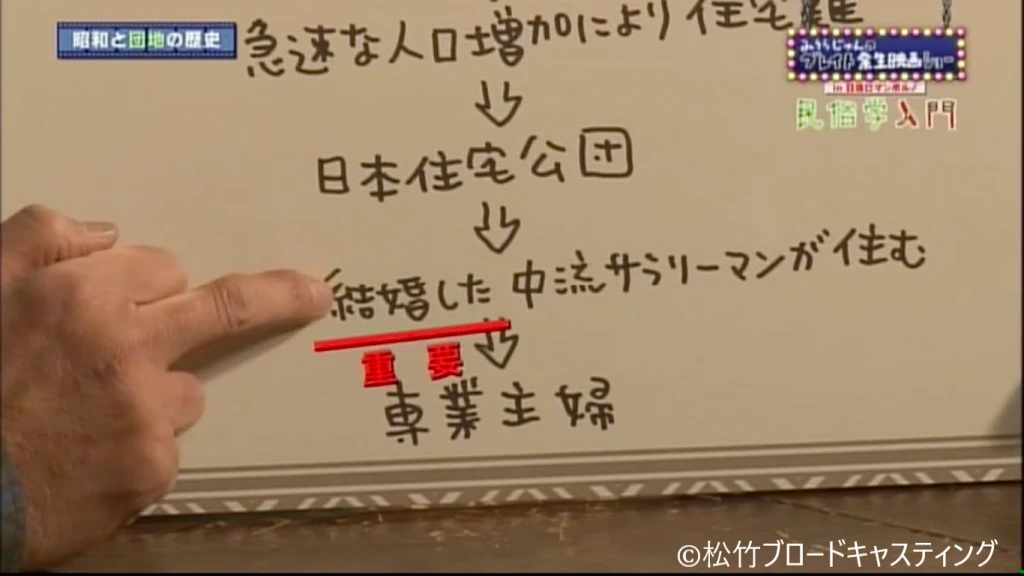 昭和と団地の歴史
みうらじゅんの
グレイト余生映画ショー
in 日活ロマンポルノ
民俗学入門
急速な人口増加により住宅難
日本住宅公団
結婚した中流サラリーマンが住む
重要
専業主婦
©松竹ブロードキャスティング